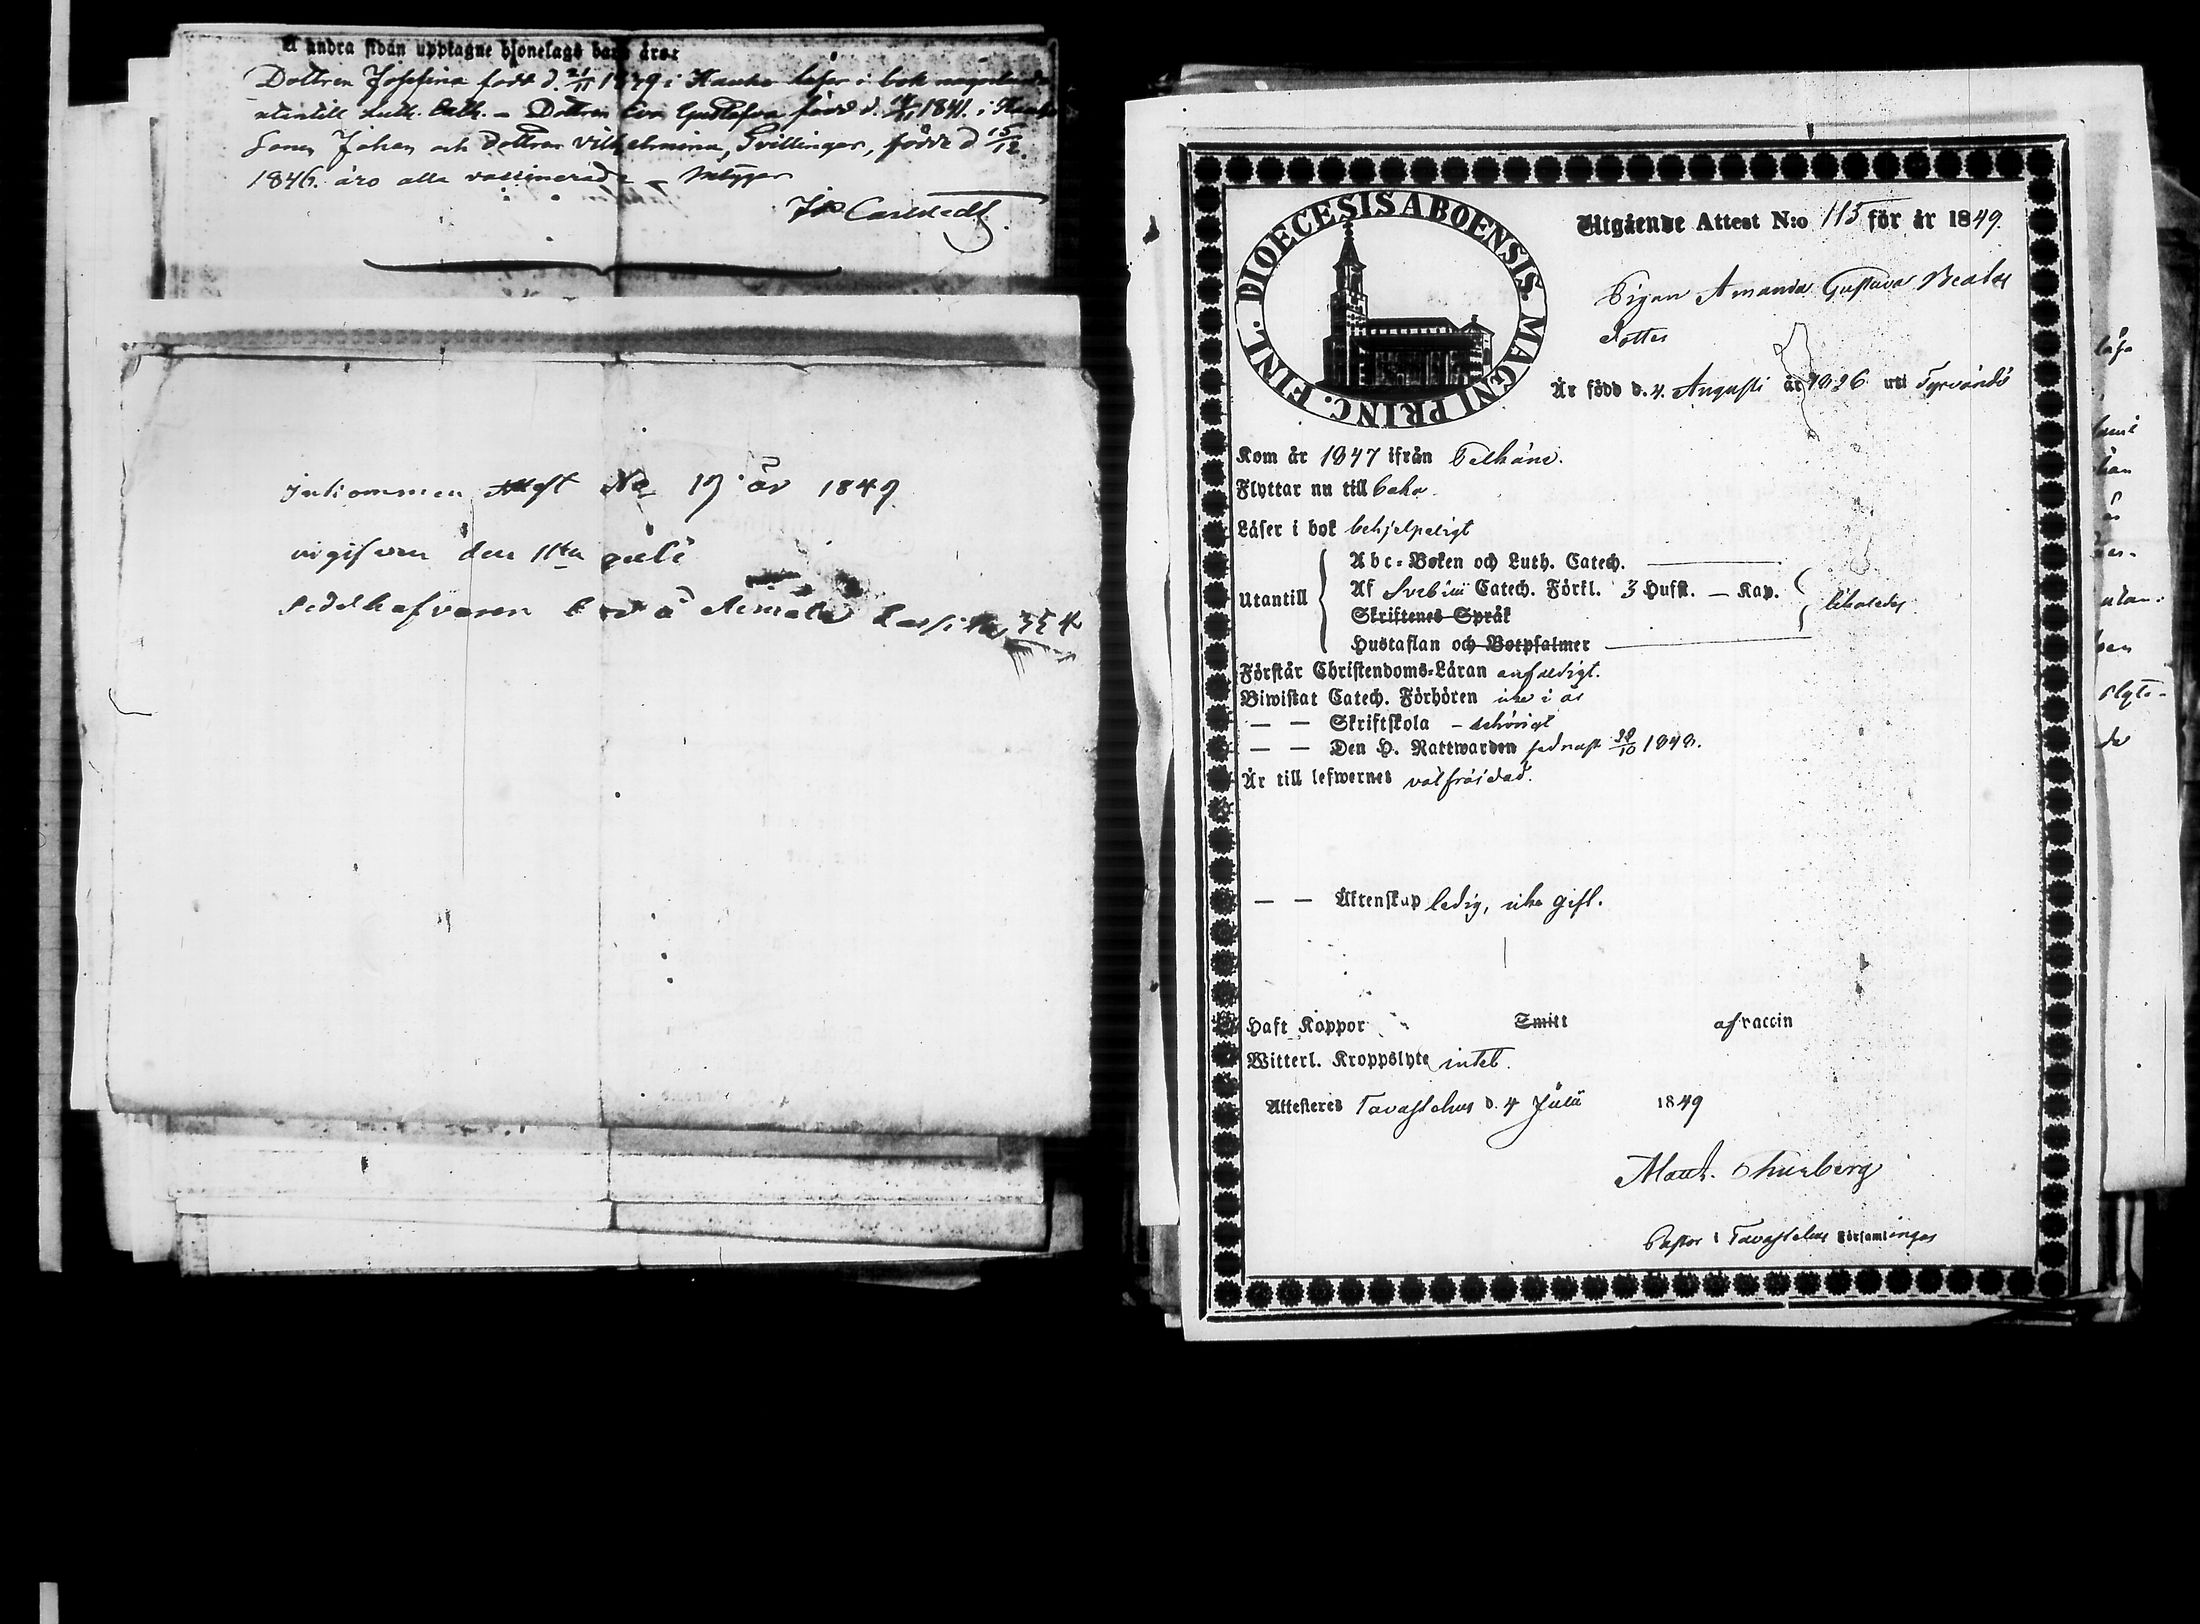 å andra sidan upptagne bonelags barn äro:
Dottren Josefina född d. 21/11 1839 i Hauho läser i bok
utantill Luth. Cath. – Dottren Eva Gustafva född d. 1841. i Hauho
Sonen Johan och Dottren Vilhelmina, Tvillingar, födde d 15/12.
1846. äro alla vaccinerade – intygar
Carlstedt
Inkommen Attest No 17 år 1849.
uigifven den 11te Juli
354
DIOECESIS ABOENSIS. MAGNI PRINC. FINL.
Utgående Attest N:o 115 för år 1849.
Pigan Amanda Gustava Beatas
dotter
Är född d. 4. Augusti år 1826 uti Tyrvändö
Kom år 1847 ifrån Pelkäne.
Flyttar nu till baka.
Läser i bok behjelpeligt
Utantill
Abc-Boken och Luth. Catech. —
Af Svebilii Catech. Förkl. 3 Hufst. — Kap.
Skriftenes Språk
Hustaflan och Botpsalmer —
Förstår Christendoms-Läran enfaldigt.
Biwistat Catech. Förhören icke i år
— — Skriftskola – behörigt
— — Den H. Nattwarden sednast 1848.
Är till lefwernes välfräjdad.
— — Äktenskap ledig, icke gift.
Haft Koppor Smitt af vaccin
Witterl. Kroppslyte intet.
Attesteres Tavastehus d. 4 Julii 1849
Thunberg
Pastor i Tavastehus Församlingar
läsa